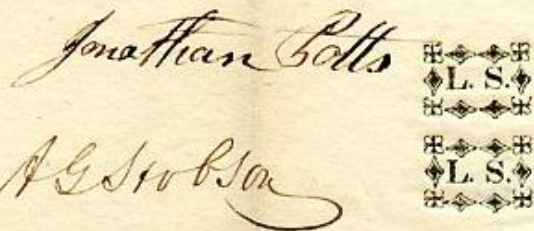 Jonathan Potts L. S.
A G Hobson L. S.